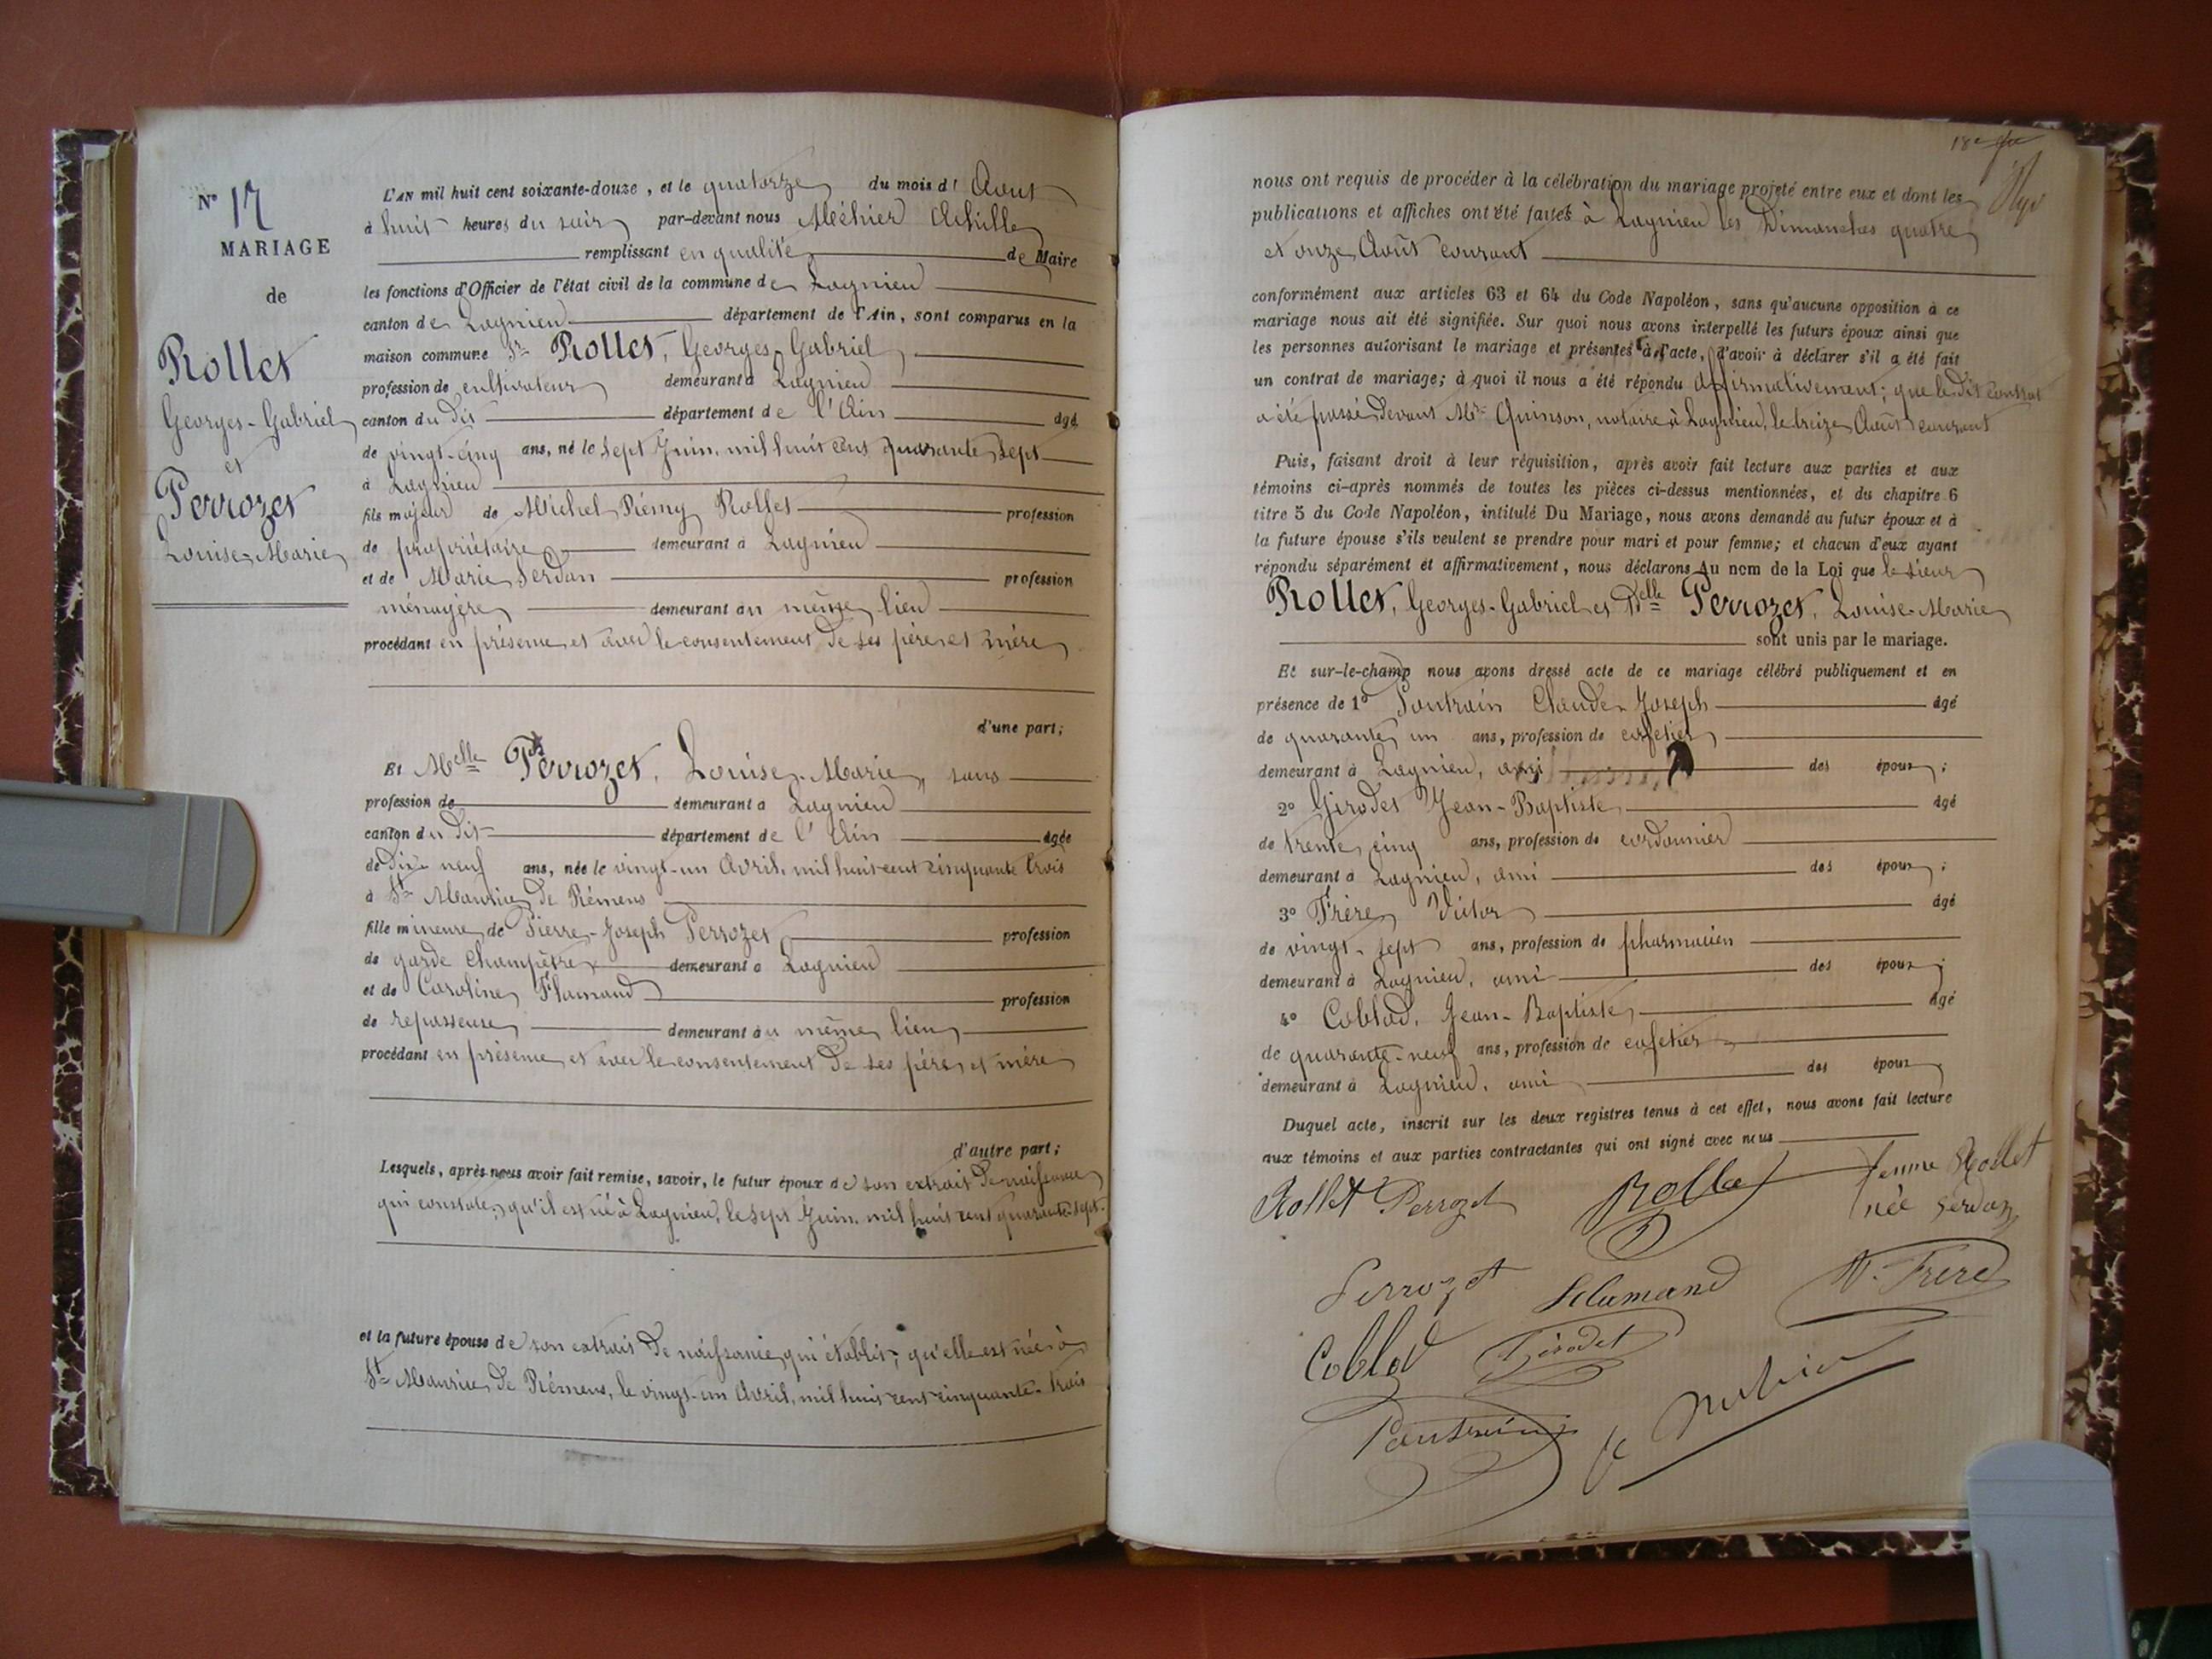 N° 17
MARIAGE
de
Rollet
Georges-Gabriel
et
Perrozet
Louise-Marie
L'AN mil huit cent soixante-douze, et le quatorze du mois d' Aout
à huit heures du soir par-devant nous Méhier Achille
remplissant en qualité de Maire
les fonctions d'Officier de l'état civil de la commune de Lagnieu
canton de Lagnieu département de l'Ain, sont comparus en la
maison commune Sr Rollet, Georges-Gabriel
profession de cultivateur demeurant à Lagnieu
canton du dit département de l'Ain âgé
de vingt-cinq ans, né le sept Juin, mil huit cent quarante sept
à Lagnieu
fils majeur de Michel Rémy Rollet profession
de propriétaire demeurant à Lagnieu
et de Marie Serdon profession
ménagère demeurant au même lieu
procédant en présence et avec le consentement de ses père et mère
d'une part;
Et Melle Perrozet, Louise-Marie, sans
profession de demeurant à Lagnieu
canton du dit département de l'Ain âgée
de dix neuf ans, née le vingt-un Avril, mil huit cent cinquante trois
à St Maurice de Rémens
fille mineure de Pierre-Joseph Perrozet profession
de garde champêtre demeurant à Lagnieu
et de Caroline Flamand profession
de repasseuse demeurant au même lieu
procédant en présence et avec le consentement de ses père et mère
d'autre part;
Lesquels, après nous avoir fait remise, savoir, le futur époux de son extrait de naissance
qui constate, qu'il est né à Lagnieu, le sept Juin, mil huit cent quarante-sept.
et la future épouse de son extrait de naissance qui établit, qu'elle est née à
St Maurice de Rémens, le vingt-un Avril, mil huit cent cinquante-trois
18e
nous ont requis de procéder à la célébration du mariage projeté entre eux et dont les
publications et affiches ont été faites à Lagnieu les Dimanches quatre
et onze Août courant
conformément aux articles 63 et 64 du Code Napoléon, sans qu'aucune opposition à ce
mariage nous ait été signifiée. Sur quoi nous avons interpellé les futurs époux ainsi que
les personnes autorisant le mariage et présentes à l'acte, d'avoir à déclarer s'il a été fait
un contrat de mariage; à quoi il nous a été répondu affirmativement; que le dit contrat
a été passé devant Me Quinson, notaire à Lagnieu, le treize Août courant
Puis, faisant droit à leur réquisition, après avoir fait lecture aux parties et aux
témoins ci-après nommés de toutes les pièces ci-dessus mentionnées, et du chapitre 6
titre 5 du Code Napoléon, intitulé Du Mariage, nous avons demandé au futur époux et à
la future épouse s'ils veulent se prendre pour mari et pour femme; et chacun d'eux ayant
répondu séparément et affirmativement, nous déclarons Au nom de la Loi que le sieur
Rollet, Georges-Gabriel et Delle Perrozet, Louise-Marie
sont unis par le mariage.
Et sur-le-champ nous avons dressé acte de ce mariage célébré publiquement et en
présence de 1° Pontrain Claude-Joseph âgé
de quarante un ans, profession de cafetier
demeurant à Lagnieu, ami des époux;
2° Girodet Jean-Baptiste âgé
de trente cinq ans, profession de cordonnier
demeurant à Lagnieu, ami des époux;
3° Frère Victor âgé
de vingt-sept ans, profession de pharmacien
demeurant à Lagnieu, ami des époux;
4° Coblod, Jean-Baptiste âgé
de quarante-neuf ans, profession de cafetier
demeurant à Lagnieu, ami des époux
Duquel acte, inscrit sur les deux registres tenus à cet effet, nous avons fait lecture
aux témoins et aux parties contractantes qui ont signé avec nous
Rollet Perrozet Rollet femme Rollet
née Serdon
Perrozet Flamand V. Frere
Coblod Girodet
Pontrain Méhier